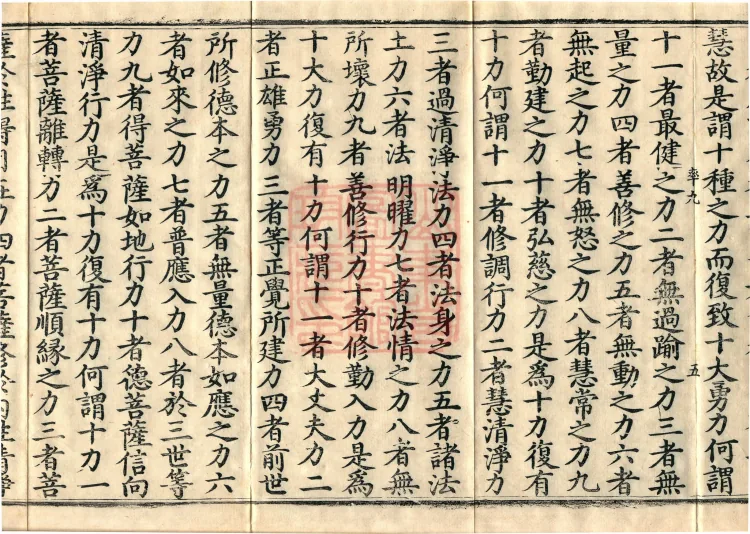 慧故是謂十種之力而復致十大勇力何謂
率九 五
十一者最健之力二者無過踰之力三者無
量之力四者善修之力五者無動之力六者
無起之力七者無怒之力八者慧常之力九
者勤建之力十者弘慈之力是爲十力復有
十力何謂十一者修調行力二者慧清淨力
三者過清淨法力四者法身之力五者諸法
土力六者法明曜力七者法情之力八者無
所壞力九者善修行力十者修勤入力是爲
十大力復有十力何謂十一者大丈夫力二
者正雄勇力三者等正覺所建力四者前世
所修德本之力五者無量德本如應之力六
者如來之力七者普應入力八者於三世等
力九者得菩薩如地行力十者德菩薩信向
清淨行力是爲十力復有十力何謂十力一
者菩薩離轉力二者菩薩順緣之力三者菩